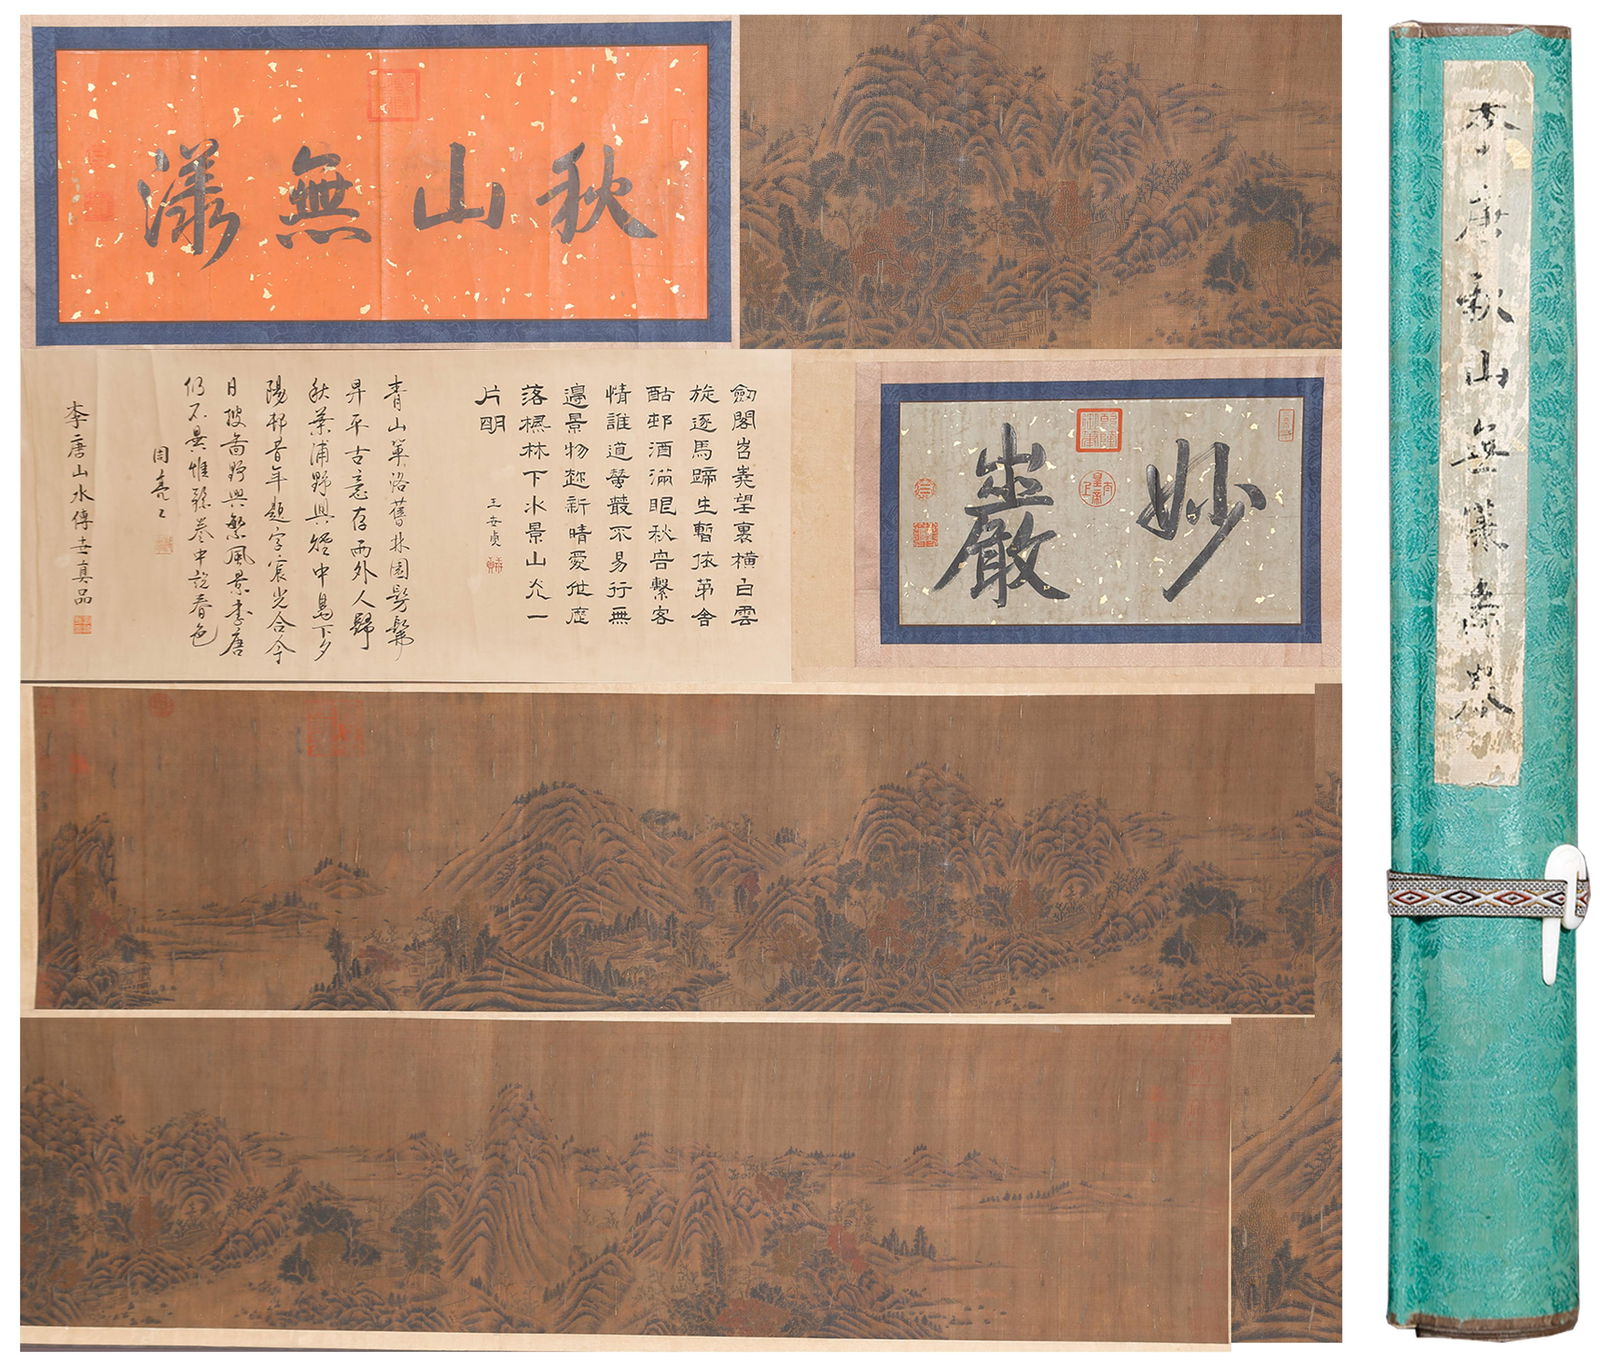 秋山無瀁
妙嚴
劍閣岧嶤望裏橫白雲
旋逐馬蹄生暫依茅舍
酤邨酒滿眼秋容繫客
情誰道蠶叢不易行無
邊景物趂新晴愛他歷
落楓林下水景山光一
片明
王世貞
青山草洛舊林園髣髴
昇平古意存雨外人歸
秋葉浦野興烟中鳥下夕
陽邨昔年題字宸光合今
日披圖野興繁風景李唐
仍不異惟餘卷中說春色
周亮工
李唐山水傳世真品
李唐秋山無瀁圖卷